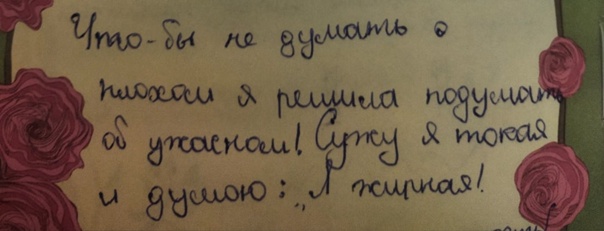 Что-бы не думать о
плохом я решила подумать
об ужасном! Сужу я токая
и думою: „Я жирная!